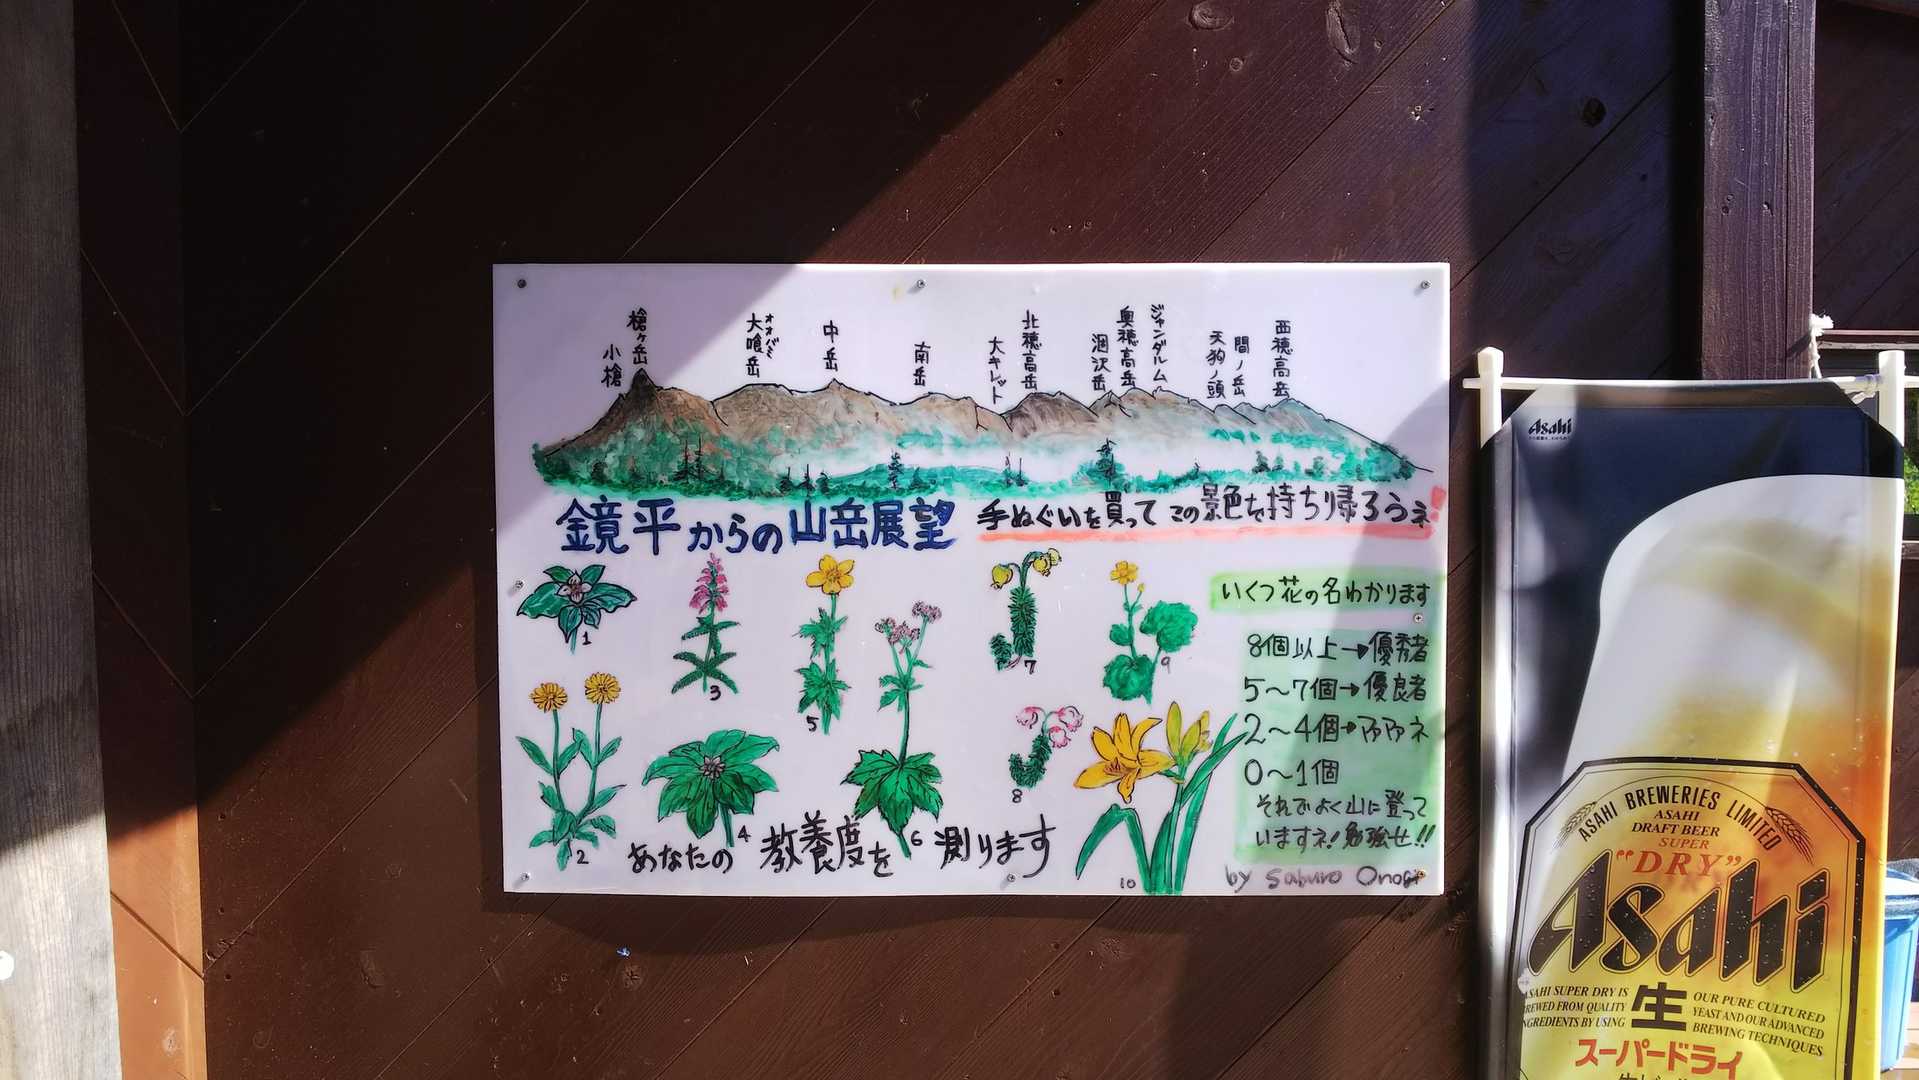 槍ヶ岳
小槍
オオバミ
大喰岳
中岳
南岳
大キレット
北穂高岳
涸沢岳
奥穂高岳
ジャンダルム
天狗ノ頭
間ノ岳
西穂高岳
鏡平からの山岳展望
手ぬぐいを買ってこの景色を持ち帰ろうネ!
いくつ花の名わかります
8個以上→優秀者
5〜7個→優良者
2〜4個→ネ
0〜1個
それでよく山に登って
いますネ!勉強せ!!
1
2
3
4
5
6
7
8
9
10
あなたの教養度を測ります
by Saburo Onogi
Asahi
ASAHI BREWERIES LIMITED
ASAHI
DRAFT BEER
SUPER
"DRY"
Asahi
ASAHI SUPER DRY IS
BREWED FROM QUALITY
INGREDIENTS BY USING
生
OUR PURE CULTURED
YEAST AND OUR ADVANCED
BREWING TECHNIQUES
スーパードライ